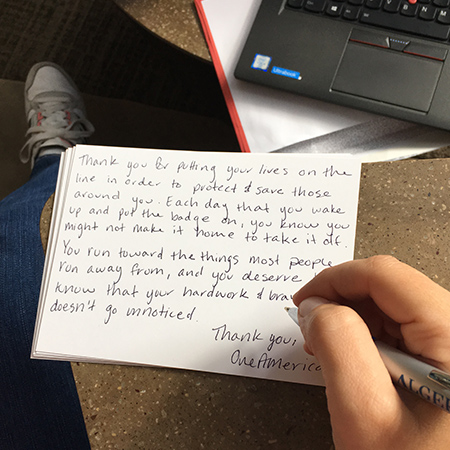 Thank you for putting your lives on the
line in order to protect & save those
around you. Each day that you wake
up and put the badge on, you know you
might not make it home to take it off.
You run toward the things most people
run away from, and you deserve
know that your hardwork & brav
doesn't go unnoticed.
Thank you,
OneAmerica
Ultrabook
ALGE